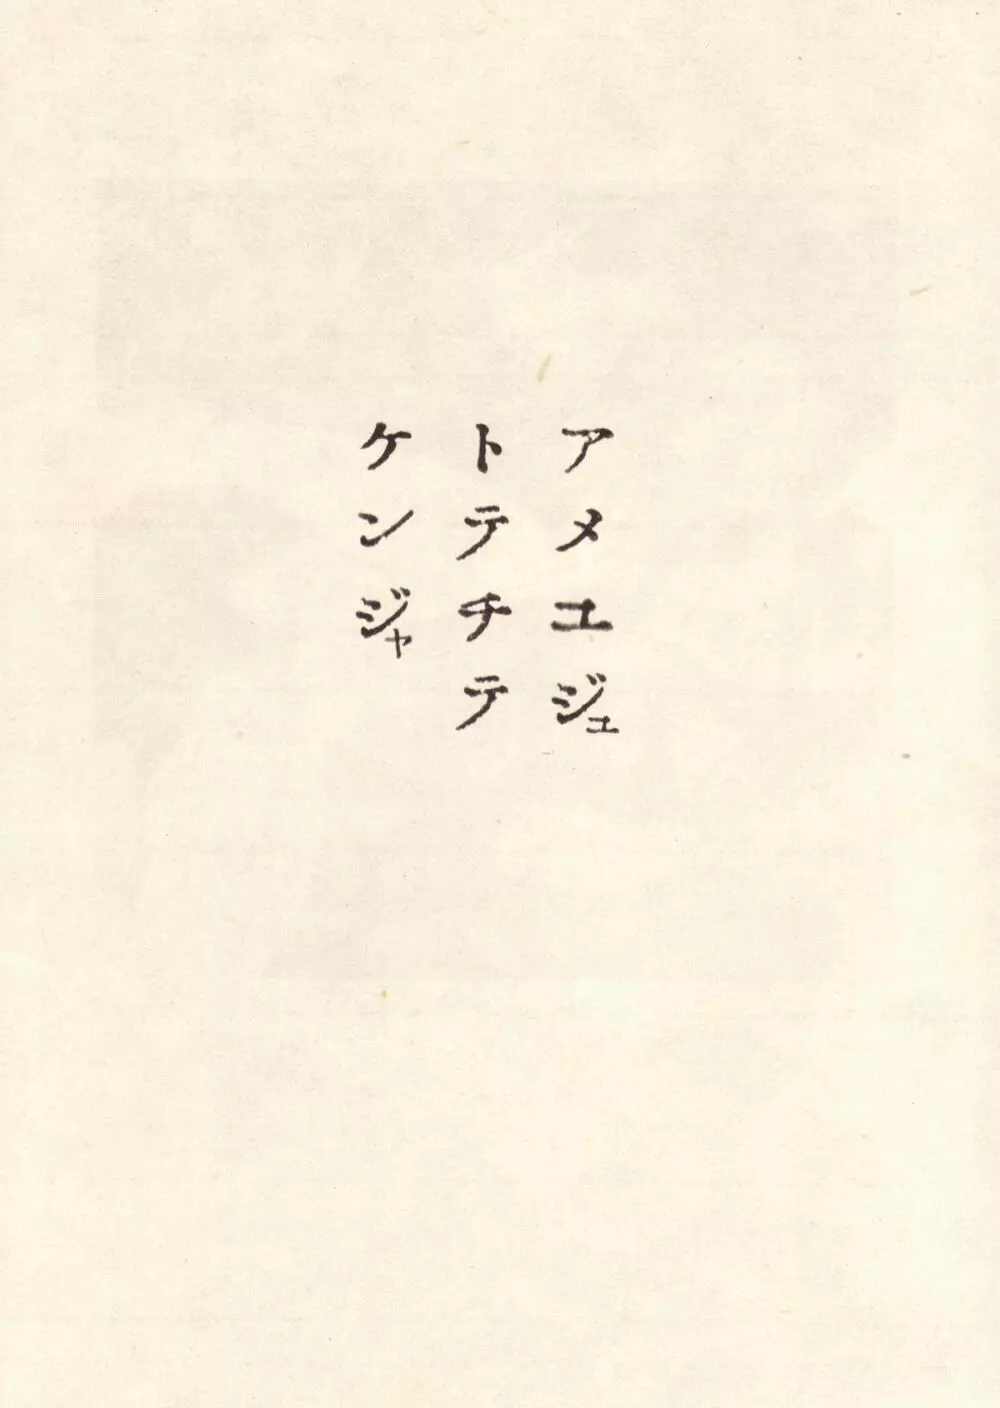 アメユジュ
トテチテ
ケンジャ